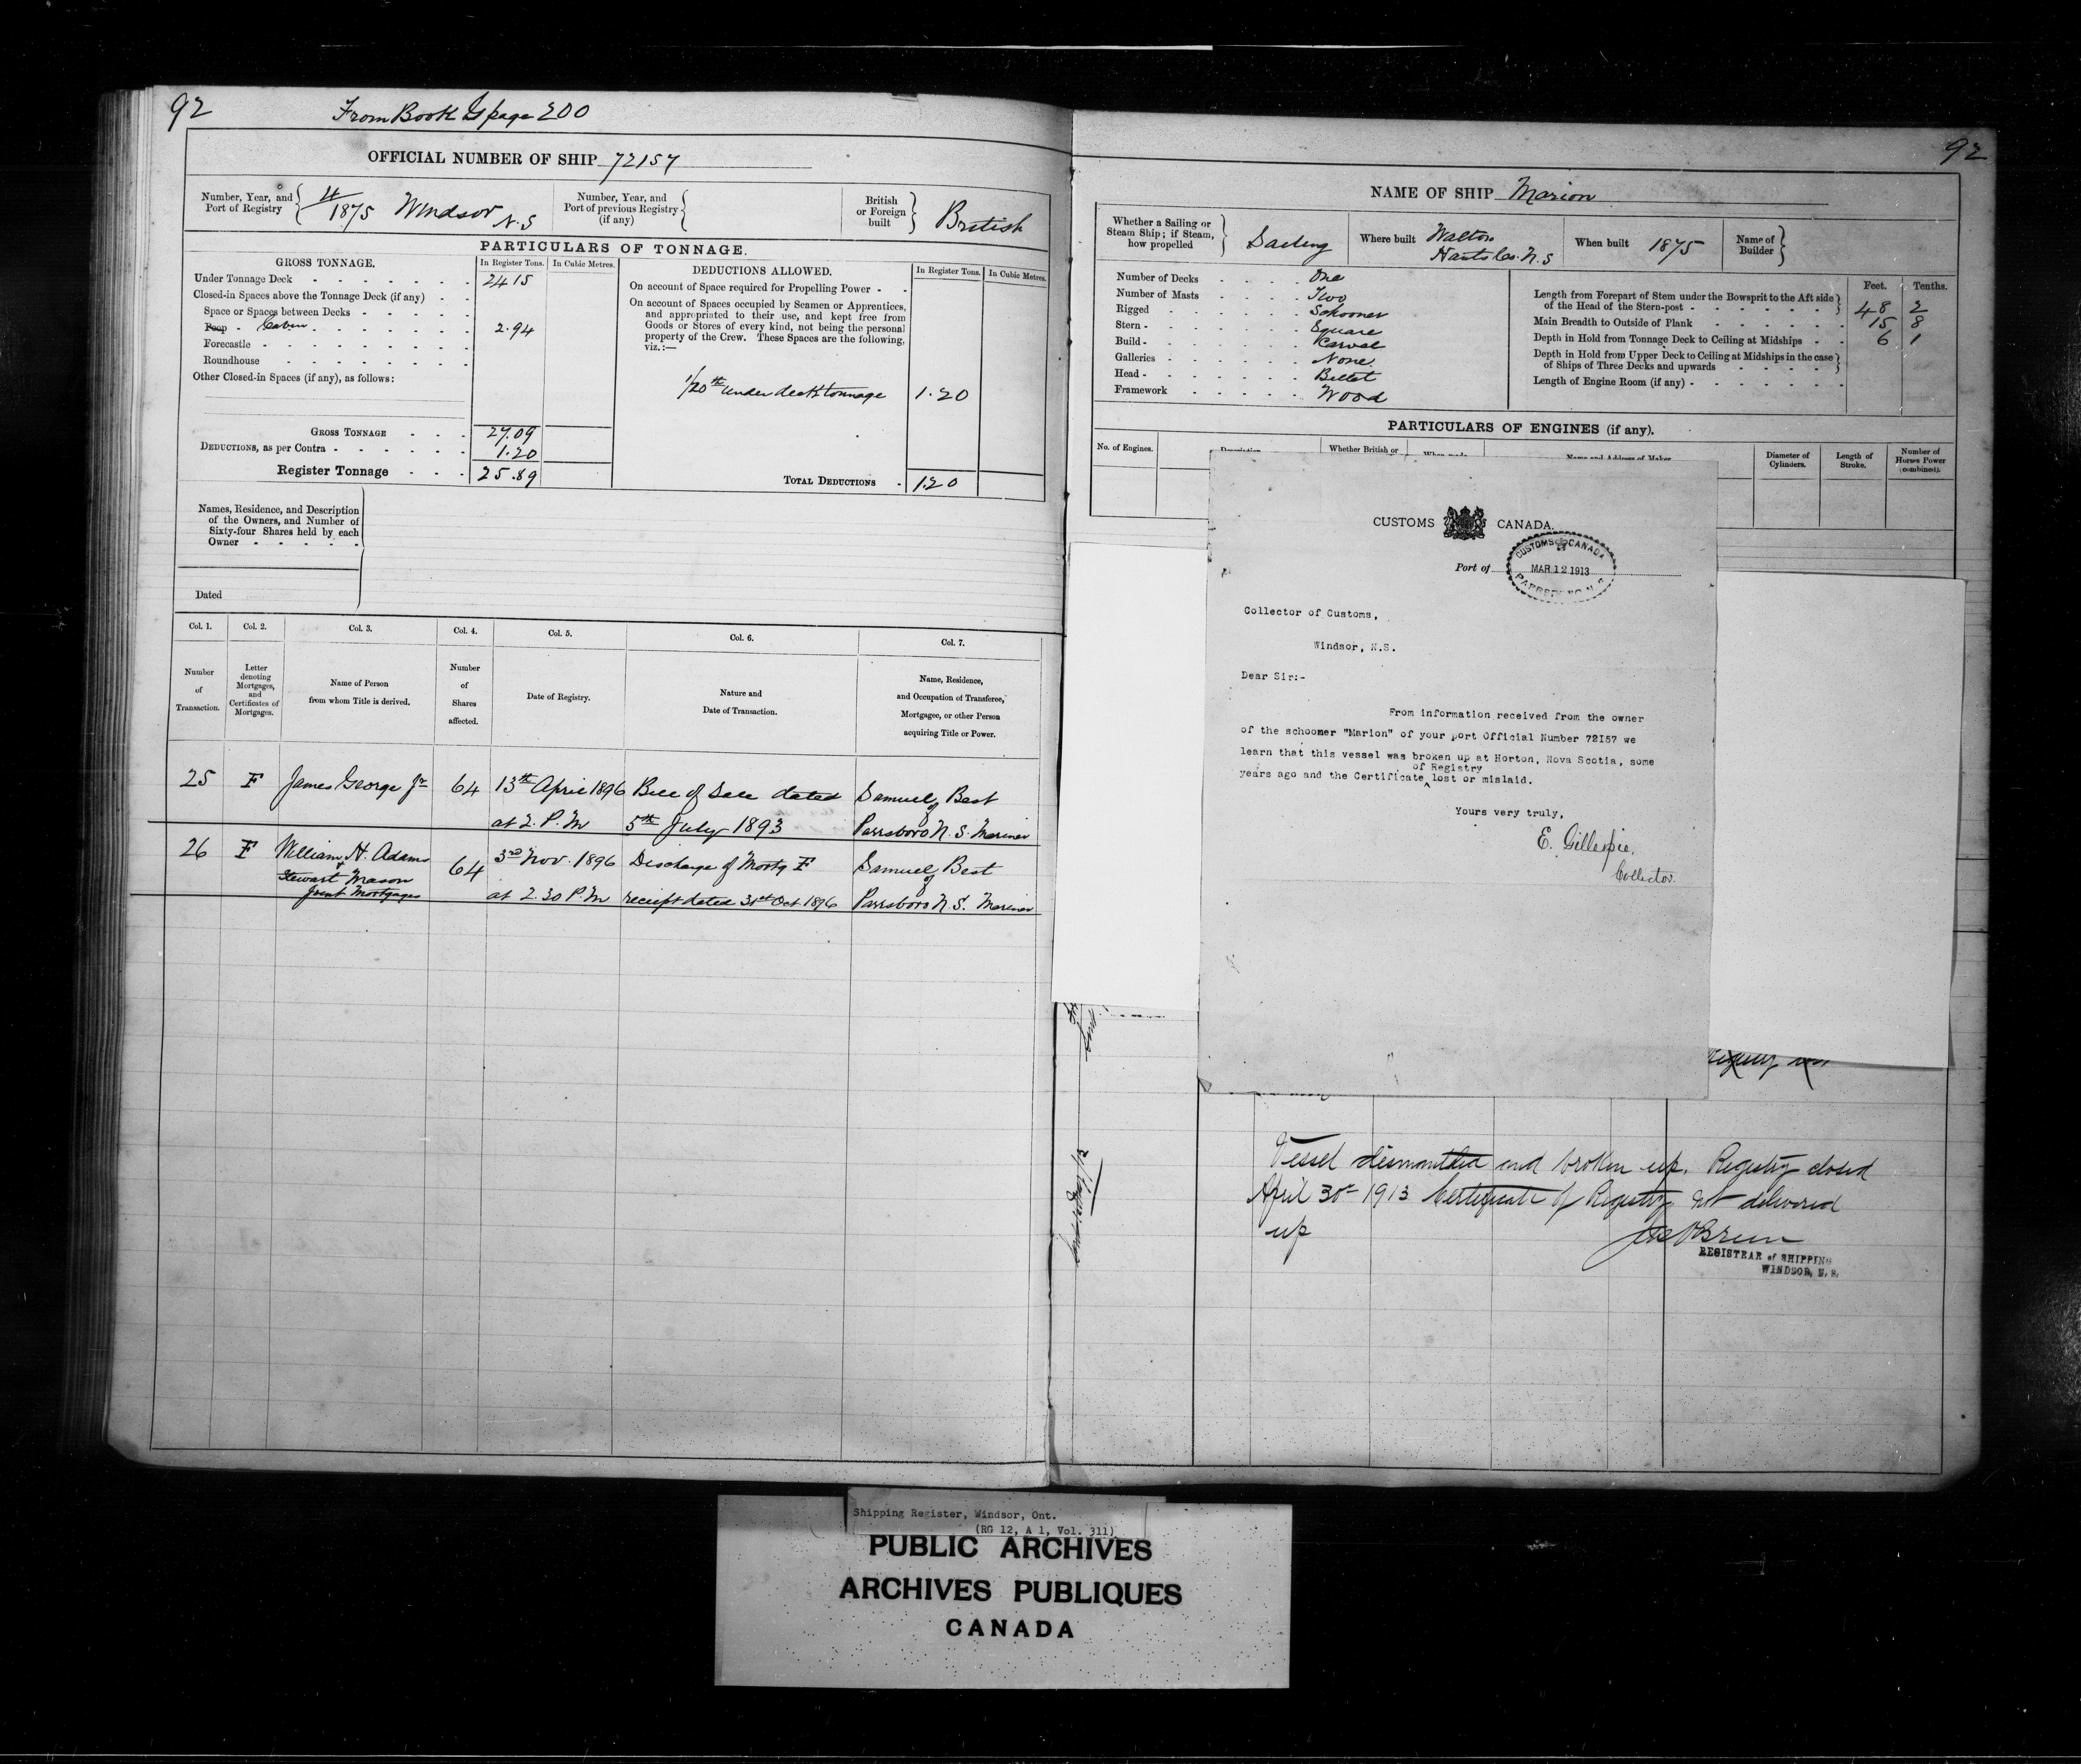 92
From Book G page 200
OFFICIAL NUMBER OF SHIP 72157
Number, Year, and Port of Registry
1875 Windsor N.S
Number, Year, and Port of previous Registry (if any)
British or Foreign built
British
PARTICULARS OF TONNAGE.
GROSS TONNAGE.
In Register Tons.
In Cubic Metres.
Under Tonnage Deck 24 15
Closed-in Spaces above the Tonnage Deck (if any)
Space or Spaces between Decks
Poop Cabin 2.94
Forecastle
Roundhouse
Other Closed-in Spaces (if any), as follows:
GROSS TONNAGE 27.09
DEDUCTIONS, as per Contra 1.20
Register Tonnage 25.89
DEDUCTIONS ALLOWED.
In Register Tons.
In Cubic Metres.
On account of Space required for Propelling Power
On account of Spaces occupied by Seamen or Apprentices,
and appropriated to their use, and kept free from
Goods or Stores of every kind, not being the personal
property of the Crew. These Spaces are the following,
viz.:—
1/20th under deck tonnage 1.20
TOTAL DEDUCTIONS 1.20
Names, Residence, and Description
of the Owners, and Number of
Sixty-four Shares held by each
Owner
Dated
Col. 1. Col. 2. Col. 3. Col. 4. Col. 5. Col. 6. Col. 7.
Number of Transaction.
Letter denoting Mortgages, and Certificates of Mortgages.
Name of Person from whom Title is derived.
Number of Shares affected.
Date of Registry.
Nature and Date of Transaction.
Name, Residence, and Occupation of Transferee, Mortgagee, or other Person acquiring Title or Power.
25 F James George Jr 64 13th April 1896 Bill of Sale dated Samuel Best
at 2. P.M 5th July 1893 of Parrsboro N.S. Mariner
26 F William H. Adams 64 3rd Nov. 1896 Discharge of Mortg F Samuel Best
+ Stewart Mason
Joint Mortgages at 2.30 P.M receipt dated 31st Oct 1896 of Parrsboro N.S. Mariner
92
NAME OF SHIP Marion
Whether a Sailing or Steam Ship; if Steam, how propelled
Sailing
Where built Walton
Hants Co. N.S
When built 1875
Name of Builder
Number of Decks One
Number of Masts Two
Rigged Schooner
Stern Square
Build Carvel
Galleries None
Head Billet
Framework Wood
Feet. Tenths.
Length from Forepart of Stem under the Bowsprit to the Aft side
of the Head of the Stern-post 48 2
Main Breadth to Outside of Plank 15 8
Depth in Hold from Tonnage Deck to Ceiling at Midships 6 1
Depth in Hold from Upper Deck to Ceiling at Midships in the case
of Ships of Three Decks and upwards
Length of Engine Room (if any)
PARTICULARS OF ENGINES (if any).
No. of Engines.
Description
Whether British or
When made
Name and Address of Maker
Diameter of Cylinders.
Length of Stroke.
Number of Horses Power (combined).
CUSTOMS CANADA.
Port of
CUSTOMS CANADA
MAR 12 1913
Collector of Customs,
Windsor, N.S.
Dear Sir:-
From information received from the owner
of the schooner "Marion" of your port Official Number 72I57 we
learn that this vessel was broken up at Horton, Nova Scotia, some
of Registry
years ago and the Certificate ^ lost or mislaid.
Yours very truly,
E. Gillespie.
Collector.
Vessel dismantled and broken up. Registry closed
April 30th 1913 Certificate of Registry not delivered
up
O'Brien
REGISTRAR of SHIPPING
WINDSOR, N.S.
Shipping Register, Windsor, Ont.
(RG 12, A 1, Vol. 311)
PUBLIC ARCHIVES
ARCHIVES PUBLIQUES
CANADA